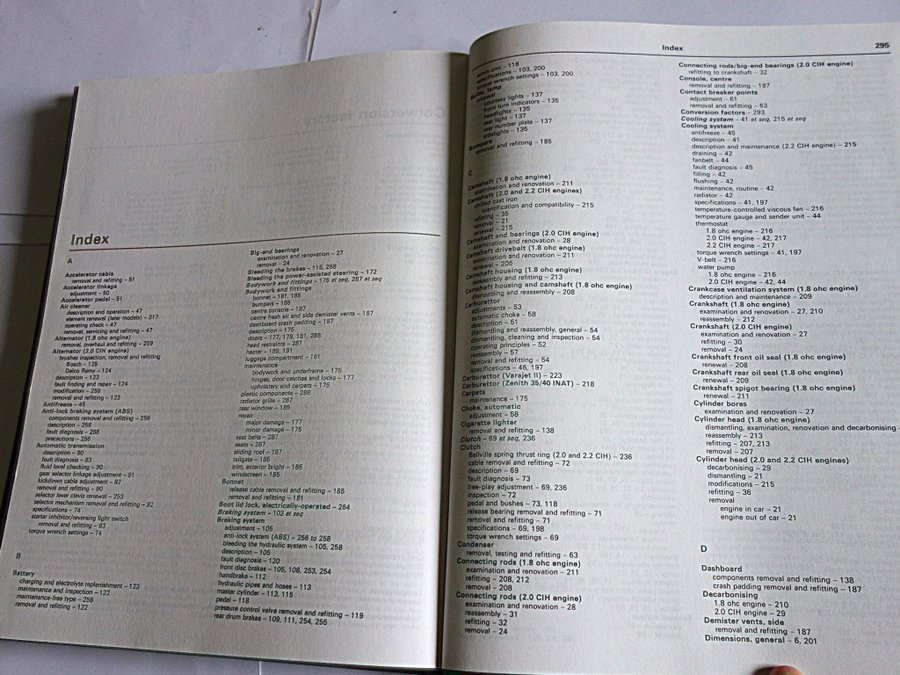 Index
A
Accelerator cable
removal and refitting – 51
Accelerator linkage
adjustment – 50
Accelerator pedal – 51
Air cleaner
description and operation – 47
element renewal (later models) – 217
operating check – 47
removal, servicing and refitting – 47
Alternator (1.8 ohc engine)
removal, overhaul and refitting – 259
Alternator (2.0 CIH engine)
brushes inspection, removal and refitting
Bosch – 125
Delco Remy – 124
description – 123
fault finding and repair – 124
modification – 250
removal and refitting – 123
Antifreeze – 45
Anti-lock braking system (ABS)
components removal and refitting – 256
description – 256
fault diagnosis – 258
precautions – 256
Automatic transmission
description – 90
fault diagnosis – 93
fluid level checking – 90
gear selector linkage adjustment – 91
kickdown cable adjustment – 92
removal and refitting – 90
selector lever clevis renewal – 253
selector mechanism removal and refitting – 92
specifications – 74
starter inhibitor/reversing light switch
removal and refitting – 93
torque wrench settings – 74
B
Battery
charging and electrolyte replenishment – 123
maintenance and inspection – 122
maintenance-free type – 258
removal and refitting – 122
Big-end bearings
examination and renovation – 27
removal – 24
Bleeding the brakes – 115, 258
Bleeding the power-assisted steering – 172
Bodywork and fittings – 175 et seq, 287 et seq
Bodywork and fittings
bonnet – 181, 185
bumpers – 185
centre console – 187
centre fresh air and side demister vents – 187
dashboard crash padding – 187
description – 175
doors – 177, 179, 181, 288
head restraints – 287
heater – 189, 191
luggage compartment – 181
maintenance
bodywork and underframe – 175
hinges, door catches and locks – 177
upholstery and carpets – 175
plastic components – 289
radiator grille – 287
rear window – 185
repair
major damage – 177
minor damage – 175
seat belts – 287
seats – 287
sliding roof – 187
tailgate – 185
trim, exterior bright – 185
windscreen – 185
Bonnet
release cable removal and refitting – 185
removal and refitting – 181
Boot lid lock, electrically-operated – 264
Braking system – 103 et seq
Braking system
adjustment – 105
anti-lock system (ABS) – 256 to 258
bleeding the hydraulic system – 105, 258
description – 105
fault diagnosis – 120
front disc brakes – 105, 108, 253, 254
handbrake – 112
hydraulic pipes and hoses – 113
master cylinder – 113, 115
pedal – 118
pressure control valve removal and refitting – 119
rear drum brakes – 109, 111, 254, 255
Index 295
servo unit – 118
specifications – 103, 200
torque wrench settings – 103, 200
Bulbs, lamp
renewal
courtesy lights – 137
front turn indicators – 135
headlights – 135
rear light – 137
rear number plate – 137
sidelights – 135
Bumpers
removal and refitting – 185
C
Camshaft (1.8 ohc engine)
examination and renovation – 211
Camshaft (2.0 and 2.2 CIH engines)
chilled cast iron
identification and compatibility – 215
refitting – 35
removal – 21
renewal – 215
Camshaft and bearings (2.0 CIH engine)
examination and renovation – 28
Camshaft drivebelt (1.8 ohc engine)
examination and renovation – 211
renewal – 205
Camshaft housing (1.8 ohc engine)
reassembly and refitting – 213
Camshaft housing and camshaft (1.8 ohc engine)
dismantling and reassembly – 208
Carburettor
adjustments – 53
automatic choke – 58
description – 51
dismantling and reassembly, general – 54
dismantling, cleaning and inspection – 54
operating principles – 52
reassembly – 57
removal and refitting – 54
specifications – 46, 197
Carburettor (Varajet II) – 223
Carburettor (Zenith 35/40 INAT) – 218
Carpets
maintenance – 175
Choke, automatic
adjustment – 58
Cigarette lighter
removal and refitting – 138
Clutch – 69 et seq, 236
Clutch
Bellville spring thrust ring (2.0 and 2.2 CIH) – 236
cable removal and refitting – 72
description – 69
fault diagnosis – 73
free-play adjustment – 69, 236
inspection – 72
pedal and bushes – 73, 118
release bearing removal and refitting – 71
removal and refitting – 71
specifications – 69, 198
torque wrench settings – 69
Condenser
removal, testing and refitting – 63
Connecting rods (1.8 ohc engine)
examination and renovation – 211
refitting – 208, 212
removal – 208
Connecting rods (2.0 CIH engine)
examination and renovation – 28
reassembly – 31
refitting – 32
removal – 24
Connecting rods/big-end bearings (2.0 CIH engine)
refitting to crankshaft – 32
Console, centre
removal and refitting – 187
Contact breaker points
adjustment – 61
removal and refitting – 63
Conversion factors – 293
Cooling system – 41 et seq, 215 et seq
Cooling system
antifreeze – 45
description – 41
description and maintenance (2.2 CIH engine) – 215
draining – 42
fanbelt – 44
fault diagnosis – 45
filling – 42
flushing – 42
maintenance, routine – 42
radiator – 42
specifications – 41, 197
temperature-controlled viscous fan – 216
temperature gauge and sender unit – 44
thermostat
1.8 ohc engine – 216
2.0 CIH engine – 42, 217
2.2 CIH engine – 217
torque wrench settings – 41, 197
V-belt – 216
water pump
1.8 ohc engine – 216
2.0 CIH engine – 42, 44
Crankcase ventilation system (1.8 ohc engine)
description and maintenance – 209
Crankshaft (1.8 ohc engine)
examination and renovation – 27, 210
reassembly – 212
Crankshaft (2.0 CIH engine)
examination and renovation – 27
refitting – 30
removal – 24
Crankshaft front oil seal (1.8 ohc engine)
renewal – 208
Crankshaft rear oil seal (1.8 ohc engine)
renewal – 209
Crankshaft spigot bearing (1.8 ohc engine)
renewal – 211
Cylinder bores
examination and renovation – 27
Cylinder head (1.8 ohc engine)
dismantling, examination, renovation and decarbonising –
reassembly – 213
refitting – 207, 213
removal – 207
Cylinder head (2.0 and 2.2 CIH engines)
decarbonising – 29
dismantling – 21
modifications – 215
refitting – 36
removal
engine in car – 21
engine out of car – 21
D
Dashboard
components removal and refitting – 138
crash padding removal and refitting – 187
Decarbonising
1.8 ohc engine – 210
2.0 CIH engine – 29
Demister vents, side
removal and refitting – 187
Dimensions, general – 6, 201